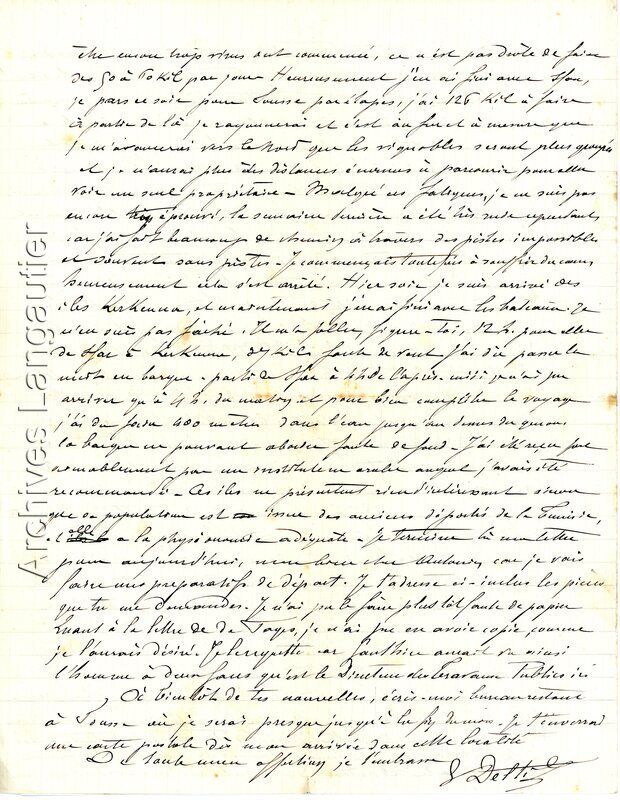 être encore trop vieux ont commencé, ce n'est pas drôle de faire
des 50 à 60 Kil par jour Heureusement j'en ai fini avec Sfax,
je pars ce soir pour Sousse par étapes, j'ai 126 Kil à faire
à partir de là je rayonnerai et c'est au fur et à mesure que
je m'avancerai vers le Nord que les vignobles seront plus groupés
et je n'aurai plus des distances énormes à parcourir pour aller
voir un seul propriétaire - Malgré ces fatigues, je ne suis pas
encore trop éprouvé, la semaine dernière a été très rude cependant
car j'ai fait beaucoup de chemin à travers des pistes impossibles
et souvent sans pistes - Je commençais toutefois à souffrir du
heureusement cela s'est arrêté. Hier soir je suis arrivé des
îles Kerkenna, et maintenant j'en ai fini avec les bateaux. Je
n'en suis pas fâché. Il m'a fallu, figure-toi, 12 h. pour aller
de Sfax à Kerkenna, Kils faute de vent j'ai dû passer la
nuit en barque - parti de Sfax à 4h de l'après-midi je n'ai pu
arriver qu'à 4 h. du matin et pour bien compléter le voyage
j'ai dû faire 400 mètres dans l'eau jusqu'au dessus du genou
la barque ne pouvant aborder faute de fond - J'ai été reçu fort
aimablement par un instituteur arabe auquel j'avais été
recommandé - Ces îles ne présentent rien d'intéressant sinon
que sa population est issue des anciens déportés de la Tunisie,
et elle a la physionomie adéquate - Je termine là ma lettre
pour aujourd'hui, mon bien cher Antonin car je vais
faire mes préparatifs de départ. Je t'adresse ci-inclus les pièces
que tu me demandes. Je n'ai pu le faire plus tôt faute de papier
Quant à la lettre de de Fages, je n'ai pu en avoir copie, comme
je l'aurais désiré. Je le regrette car Gauthier aurait vu ainsi
l'homme à deux faces qu'est le Directeur des Travaux Publics ici
À bientôt de tes nouvelles, écris-moi bureau restant
à Sousse où je serai presque jusqu'à la fin du mois. Je t'enverrai
une carte postale dès mon arrivée dans cette localité
De toute mon affection je t'embrasse
Archives Langautier